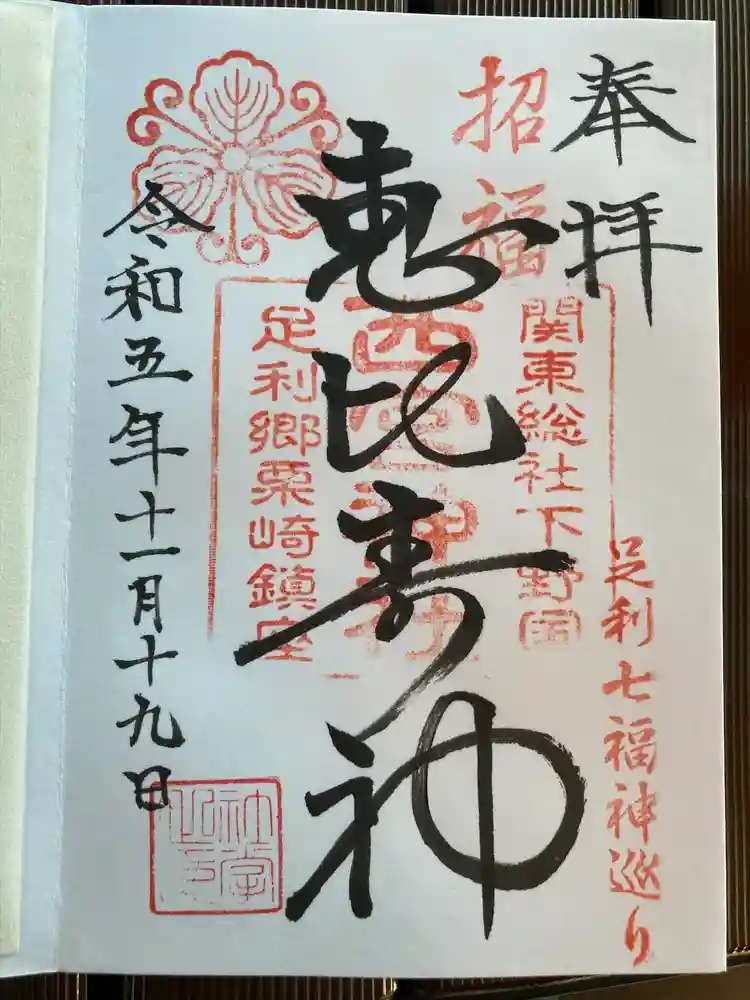 奉拝
招福
足利七福神巡り
関東総社下野国
西宮神社
足利郷栗崎鎮座
恵比寿神
令和五年十一月十九日